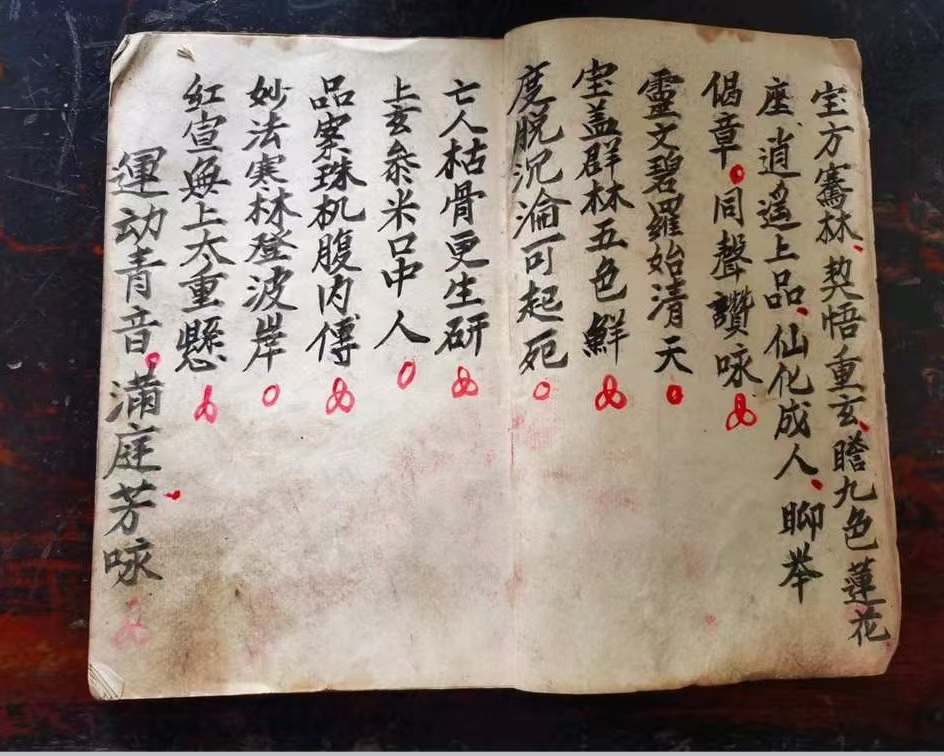 宝方騫林、契悟重玄、瞻九色蓮花
座、逍遥上品、仙化成人、聊举
偈章。同聲讚咏
靈文碧羅始清天
宝盖群林五色鮮
度脱沉淪可起死
亡人枯骨更生研
上玄叅米口中人
品寀珠机腹内傳
妙法寒林登波岸
紅宣無上太重懸
運动青音。滿庭芳咏